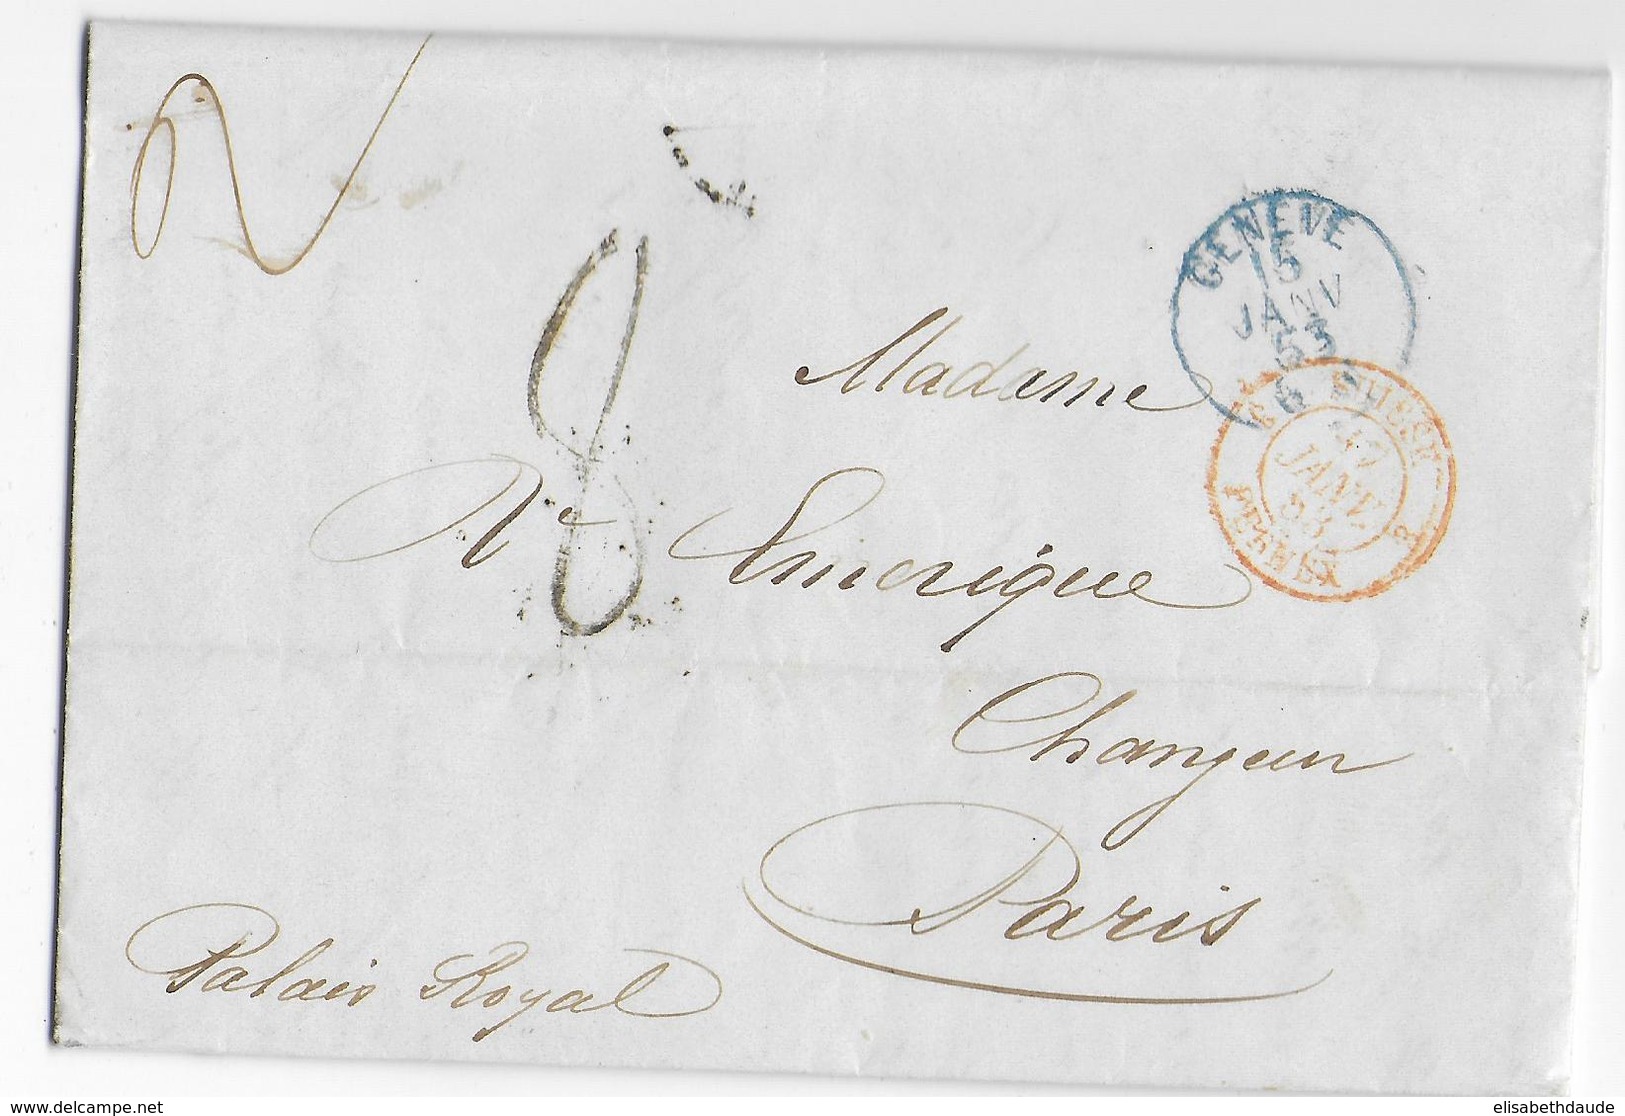 8
GENEVE
15
JANV
53
6
2 SUISSE 2
17
JANV.
53
FERNEY
Madame
Ve Emerique
Changeur
Paris
Palais Royal
delcampe.net
elisabethdaude